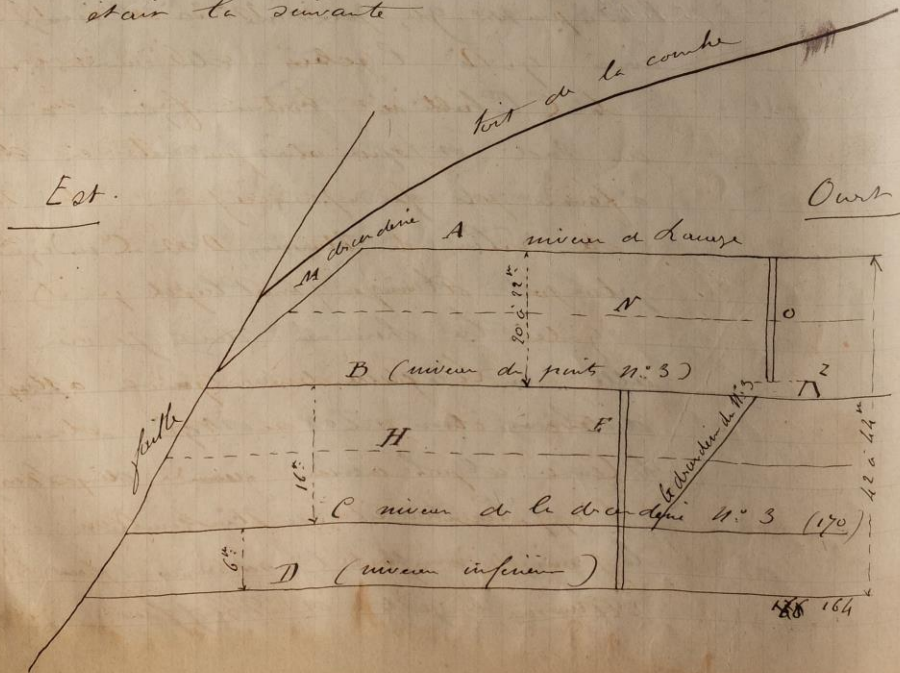 était la suivante
toit de la couche
Est.
Ouest
M descenderie
A niveau de Lauege
20 à 22m
N
O
B (niveau du puits N°3)
2
faille
E
H
la descenderie N°3
16m
42 à 44m
C niveau de la descenderie N° 3 (170)
6m
D (niveau inférieur)
164